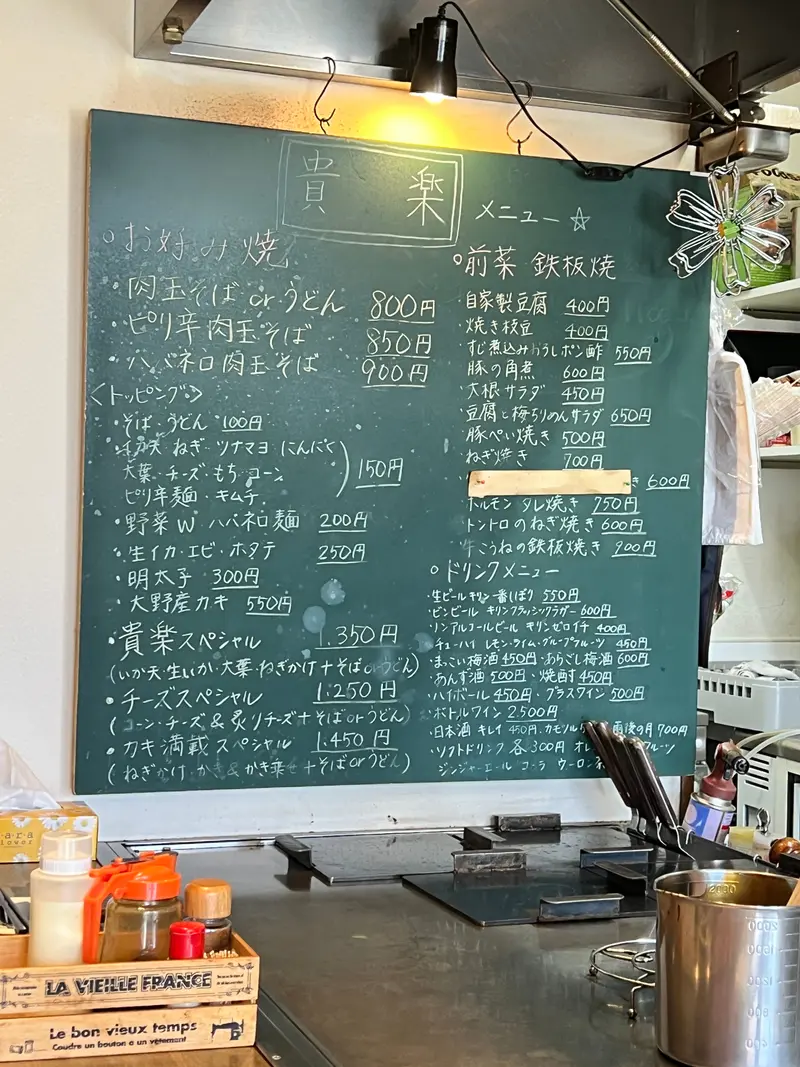 貴楽
メニュー☆
○お好み焼
・肉玉そば or うどん 800円
・ピリ辛肉玉そば 850円
・ハバネロ肉玉そば 900円
<トッピング>
・そば うどん 100円
・イカ天・ねぎ・ツナマヨ・にんにく
大葉・チーズ・もち・コーン
ピリ辛麺・キムチ
150円
・野菜W・ハバネロ麺 200円
・生イカ・エビ・ホタテ 250円
・明太子 300円
・大野産カキ 550円
・貴楽スペシャル 1.350円
(いか天・生いか・大葉・ねぎかけ+そば or うどん)
・チーズスペシャル 1.250円
(コーン・チーズ&炙りチーズ+そば or うどん)
・カキ満載スペシャル 1.450円
(ねぎかけ かき&かき乗せ+そば or うどん)
○前菜 鉄板焼
・自家製豆腐 400円
・焼き枝豆 400円
・すじ煮込みおろしポン酢 550円
・豚の角煮 600円
・大根サラダ 450円
・豆腐と梅ちりめんサラダ 650円
・豚ぺい焼き 500円
・ねぎ焼き 700円
き 600円
ホルモン タレ焼き 750円
・トントロのねぎ焼き 600円
・牛こうねの鉄板焼き 900円
○ドリンクメニュー
・生ビール キリン一番しぼり 550円
・ビンビール キリンクラッシックラガー 600円
・ノンアルコールビール キリンゼロイチ 400円
・チューハイ レモン・ライム・グレープフルーツ 450円
・まっこい梅酒 450円・あらごし梅酒 600円
・あんず酒 500円・焼酎 450円
・ハイボール 450円・グラスワイン 500円
・ボトルワイン 2.500円
・日本酒 キレイ 450円・カモツル 雨後の月 700円
・ソフトドリンク 各300円 オレ フルーツ
ジンジャーエール コーラ ウーロン
LA VIEILLE FRANCE
Le bon vieux temps
Coudre un bouton a un vêtement